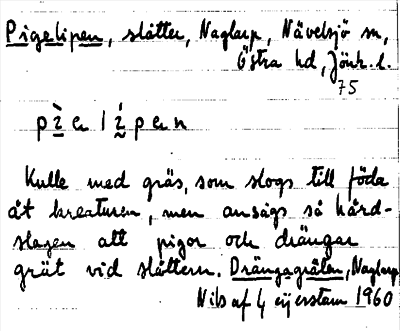 Pigelipen, slåtter, Naglarp, Nävelsjö sn,
Östra hd, Jönk. l.
75
Kulle med gräs, som slogs till föda
åt kreaturen, men ansågs så hård-
slagen att pigor och drängar
grät vid slåttern. Drängagråten, Naglarp
Nils af Ugglas 1960